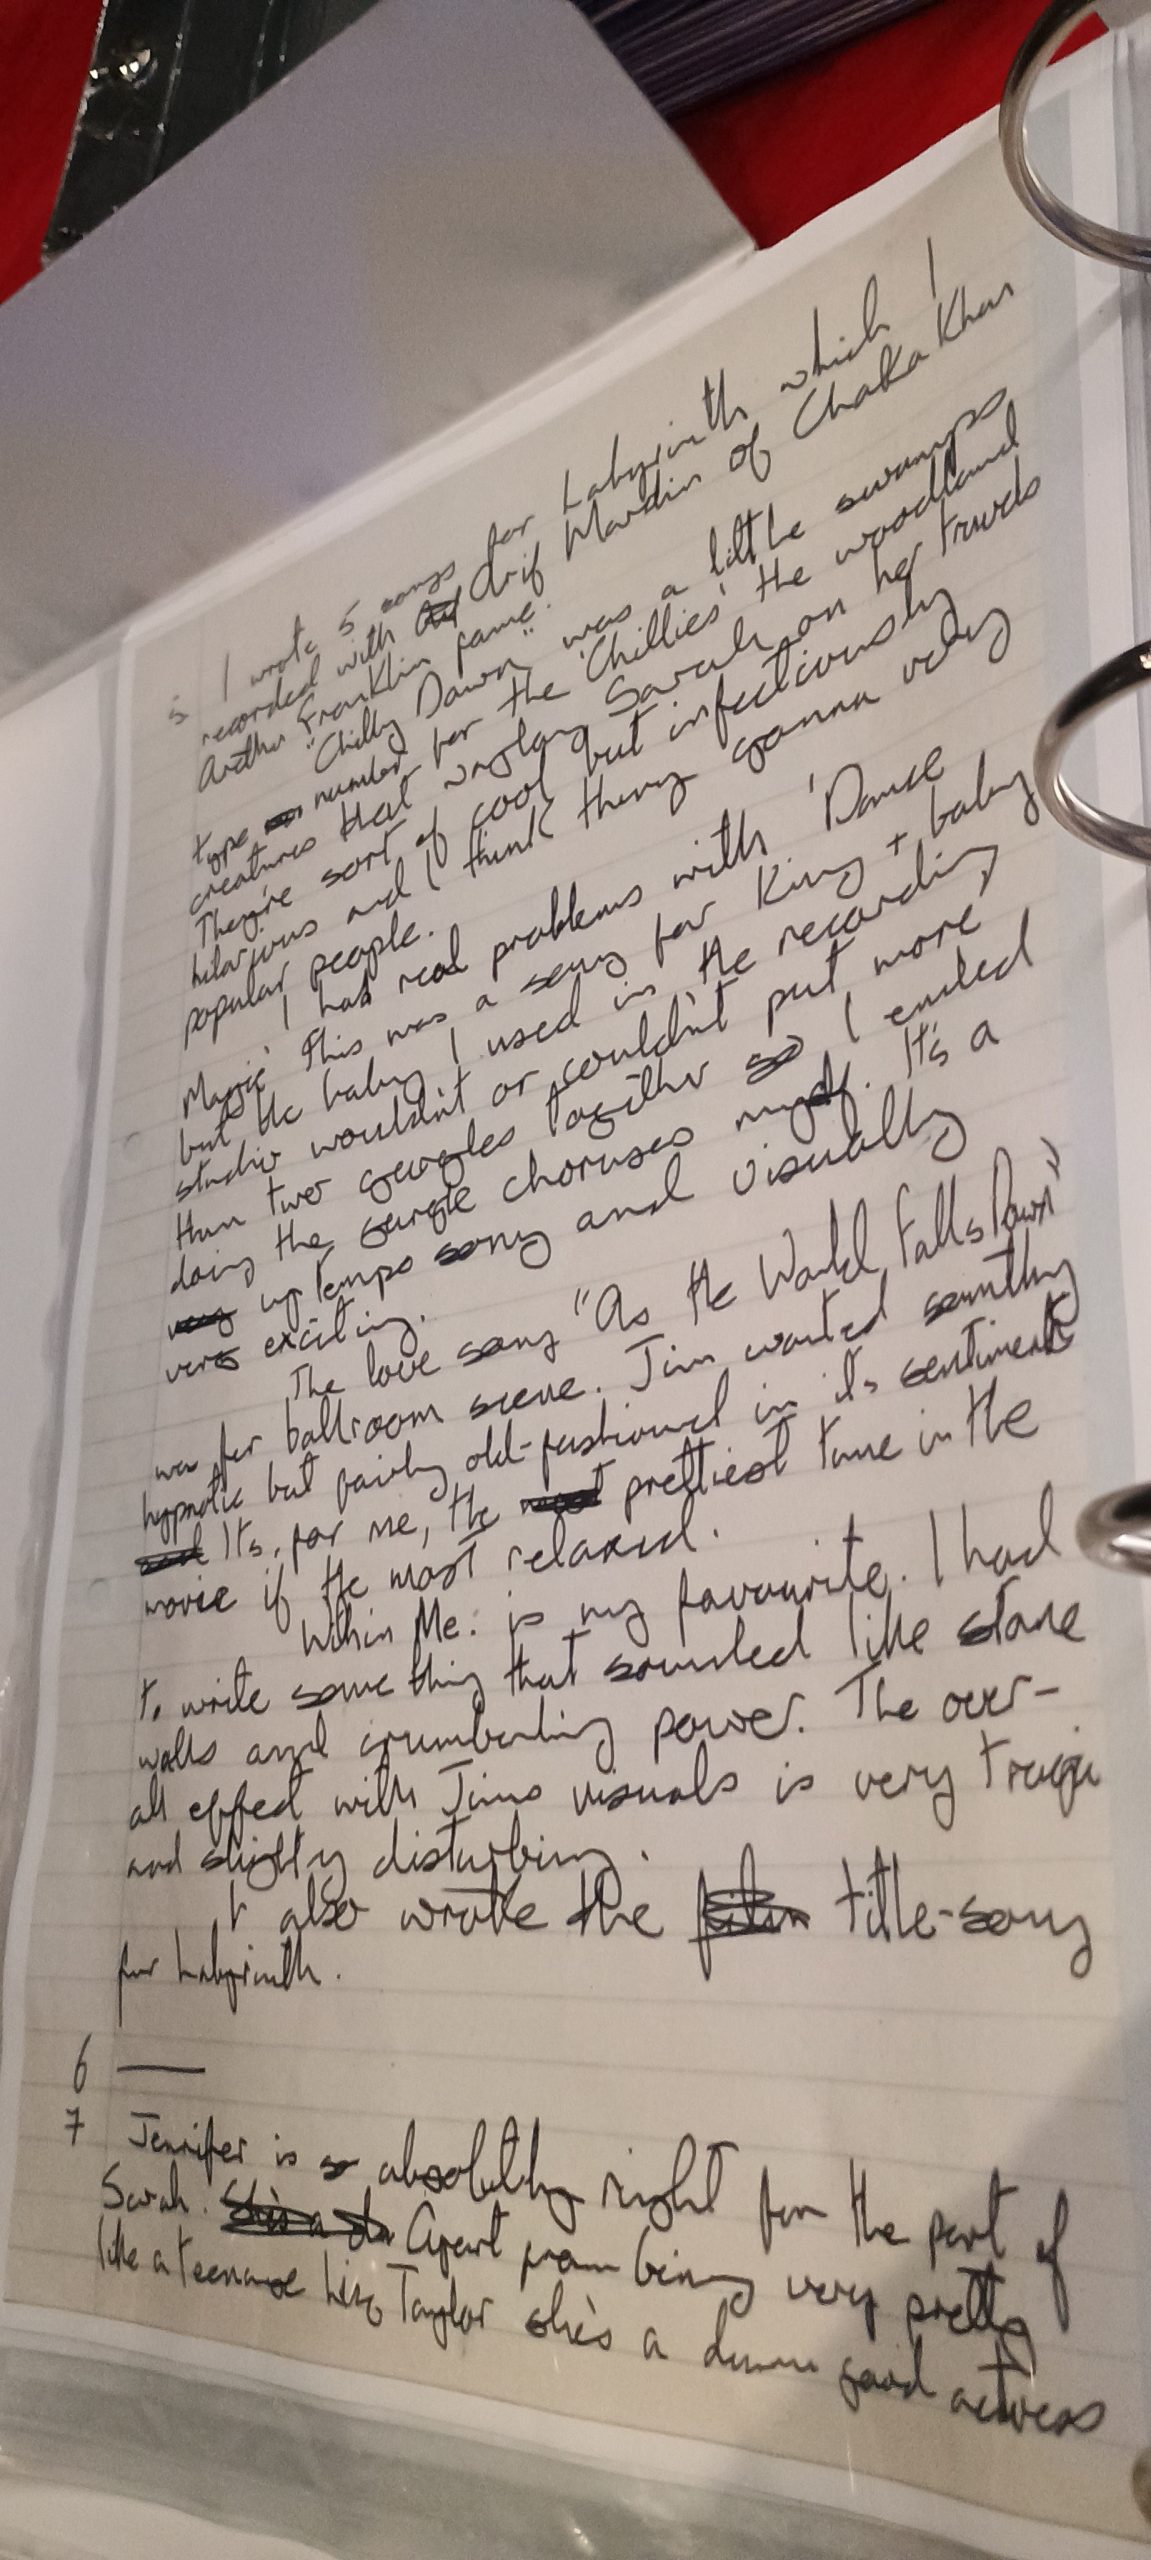 5 I wrote 5 songs for Labyrinth which I
recorded with Arif Mardin of Chaka Khan
Aretha Franklin fame.
"Chilly Down" was a little swamps
type number for the 'Chillies' the woodland
creatures that waylay Sarah on her travels
They're sort of cool but infectiously
hilarious and I think they gonna very
popular people.
I had real problems with 'Dance
Magic' This was a song for King + baby
but the baby I used in the recording
studio wouldn't or couldn't put more
than two gurgles together so I ended
doing the gurgle choruses myself. It's a
very up tempo song and visually
very exciting.
The love song "As the World Falls Down"
was for ballroom scene. Jim wanted something
hypnotic but fairly old-fashioned in its sentiments
Its, for me, the prettiest tune in the
movie if the most relaxed.
Within Me: is my favourite. I had
to write something that sounded like stone
walls and crumbling power. The over-
all effect with Jims visuals is very tragic
and slightly disturbing.
I also wrote the film title-song
for Labyrinth.
6 —
7 Jennifer is so absolutely right for the part of
Sarah. She's a Apart from being very pretty
like a teenage Liz Taylor she's a damn good actress